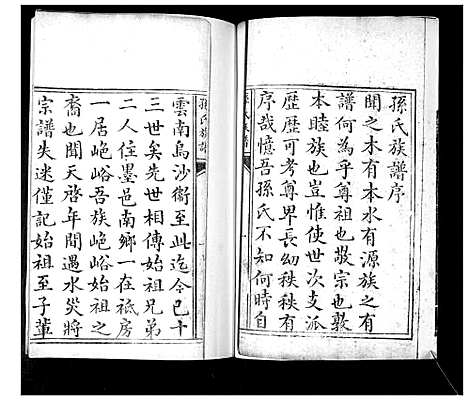 孫氏族譜序
聞之木有本水有源族之有
譜何為乎尊祖也敬宗也敦
本睦族也豈惟使世次支派
歴歴可考尊畀長幼秩秩有
序哉憶吾孫氏不知何時自
孫氏族譜
雲南烏沙衛至此迄今已十
三世矣先世相傳始祖兄弟
二人住墨邑南鄉一在祗房
一居峗峪吾族峗峪始祖之
裔也聞天啓年間遇水災將
宗譜失迷僅記始祖至子輩